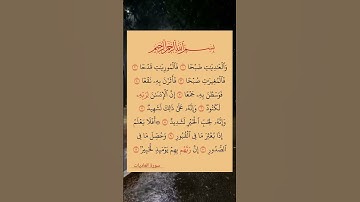 بِسْمِ ٱللَّهِ ٱلرَّحْمَٰنِ ٱلرَّحِيمِ
وَٱلْعَٰدِيَٰتِ ضَبْحًا ۝١ فَٱلْمُورِيَٰتِ قَدْحًا ۝٢
فَٱلْمُغِيرَٰتِ صُبْحًا ۝٣ فَأَثَرْنَ بِهِۦ نَقْعًا ۝٤
فَوَسَطْنَ بِهِۦ جَمْعًا ۝٥ إِنَّ ٱلْإِنسَٰنَ لِرَبِّهِۦ
لَكَنُودٌ ۝٦ وَإِنَّهُۥ عَلَىٰ ذَٰلِكَ لَشَهِيدٌ ۝٧
وَإِنَّهُۥ لِحُبِّ ٱلْخَيْرِ لَشَدِيدٌ ۝٨ ۞ أَفَلَا يَعْلَمُ
إِذَا بُعْثِرَ مَا فِى ٱلْقُبُورِ ۝٩ وَحُصِّلَ مَا فِى
ٱلصُّدُورِ ۝١٠ إِنَّ رَبَّهُم بِهِمْ يَوْمَئِذٍ لَّخَبِيرٌۢ ۝١١
سورة العاديات